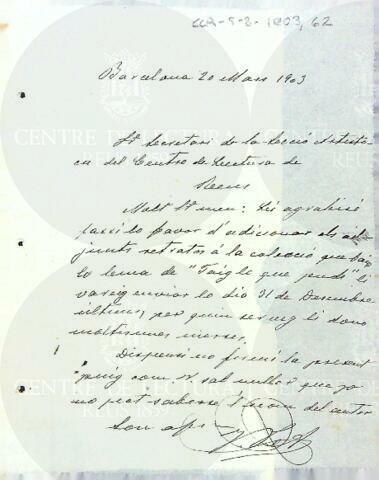 CCR-5-2-1903, 62
Barcelona 20 Mars 1903
Sr Secretari de la Secció Artisti-
ca del Centro de Lectura de
Reus
Molt Sr meu: Li agrahiré
fassi lo favor d'adicionar els ad-
junts retratos á la colecció que baix
lo lema de "Taigle que pinds" li
vareig enviar lo dia 31 de Desembre
últim, per quin servey li dono
moltissimes mercés.
Dispensi no firmi la present
puig com V. sab nulla que jo
no pot saberse l'nom del autor
Son afm
CENTRE DE LECTURA
REUS 1859